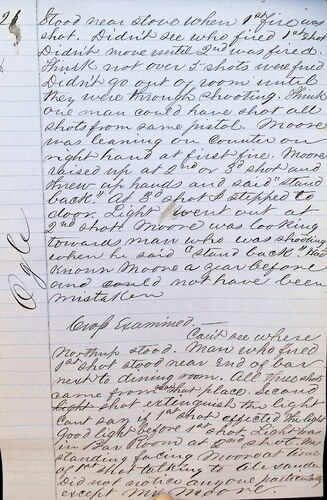 21 Stood near stove when 1st fire was
shot. Didn't see who fired 1st shot
Didn't move until 2nd was fired.
Think not over 5 shots were fired
Didn't go out of room until
they were through shooting. Think
one man could have shot all
shots from same pistol. Moore
was leaning on Counter on
right hand at first fire. Moore
raised up at 2nd or 3d shot and
threw up hands and said "stand
back." At 3d shot I stepped to
door. Light went out at
2nd shot. Moore was looking
towards man who was shooting
when he said "stand back" Had
known Moore a year before
and could not have been
mistaken
Ogle
Cross Examined.
Can't see where
Northup stood. Man who fired
1st shot stood near end of bar
next to dining room. All three shots
came from that place. Second
light shot extinguish the light
Cant say if 1st shot affected the light
Good light before 1st shot. Light was
in Bar Room at 2nd shot. Am
standing facing Moore at time
of 1st shot talking to Alexander
Did not notice anyone particularly
except Mr. Moore